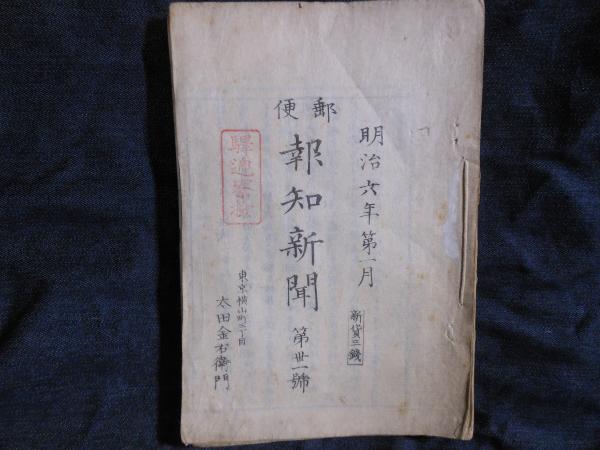 明治六年第一月
新貨三錢
郵便
報知新聞
第卅一號
東京横山町三丁目
太田金右衛門